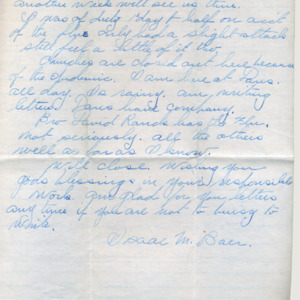 another week will see us thru.
I was of duty day & half on acct
of the flue. Only had a slight attack
still feel a little of it tho.
Churches are closed out here because
of the epidemic. I am here at Pauls
all day. Its raing. am writing
letters. Pauls have company.
Bro Harol Rands has the flu.
not seriously. all the others
well as far as I know.
Will close. Wishing you
gods blessings in your responsible
work. am glad for you letters
any time if you are not to bussy to
write.
Isaac M. Baer.